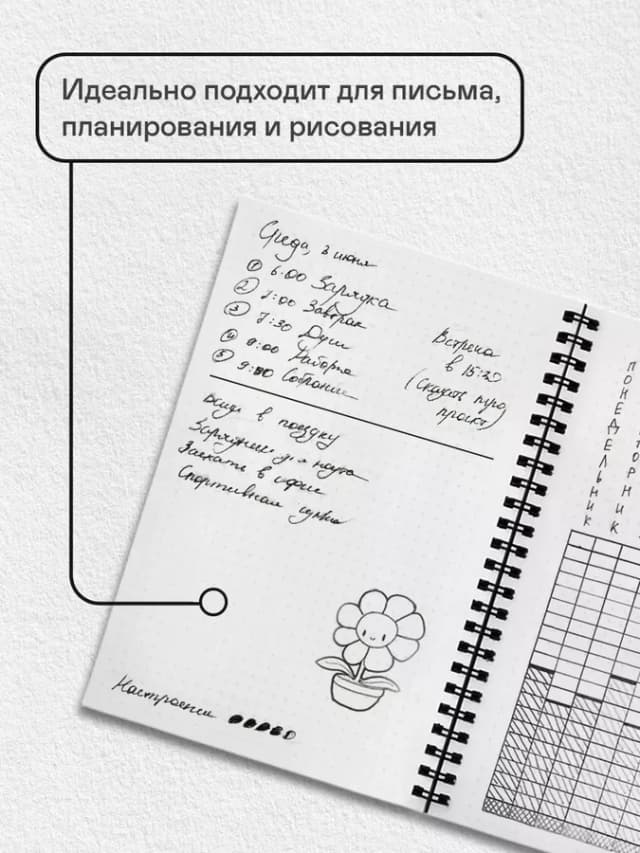 Идеально подходит для письма,
планирования и рисования
Среда, 3 июня
① 6:00 Зарядка
② 7:00 Завтрак
③ 7:30 Душ
④ 9:00 Работа
⑤ 9:30 Собрание
Встреча
в 15:20
(Сказать про
проект)
Вещи в поездку
Зарядник для ноута
Заехать в офис
Спортивная сумка
Настроение
ПОНЕДЕЛЬНИК
ВТОРНИК